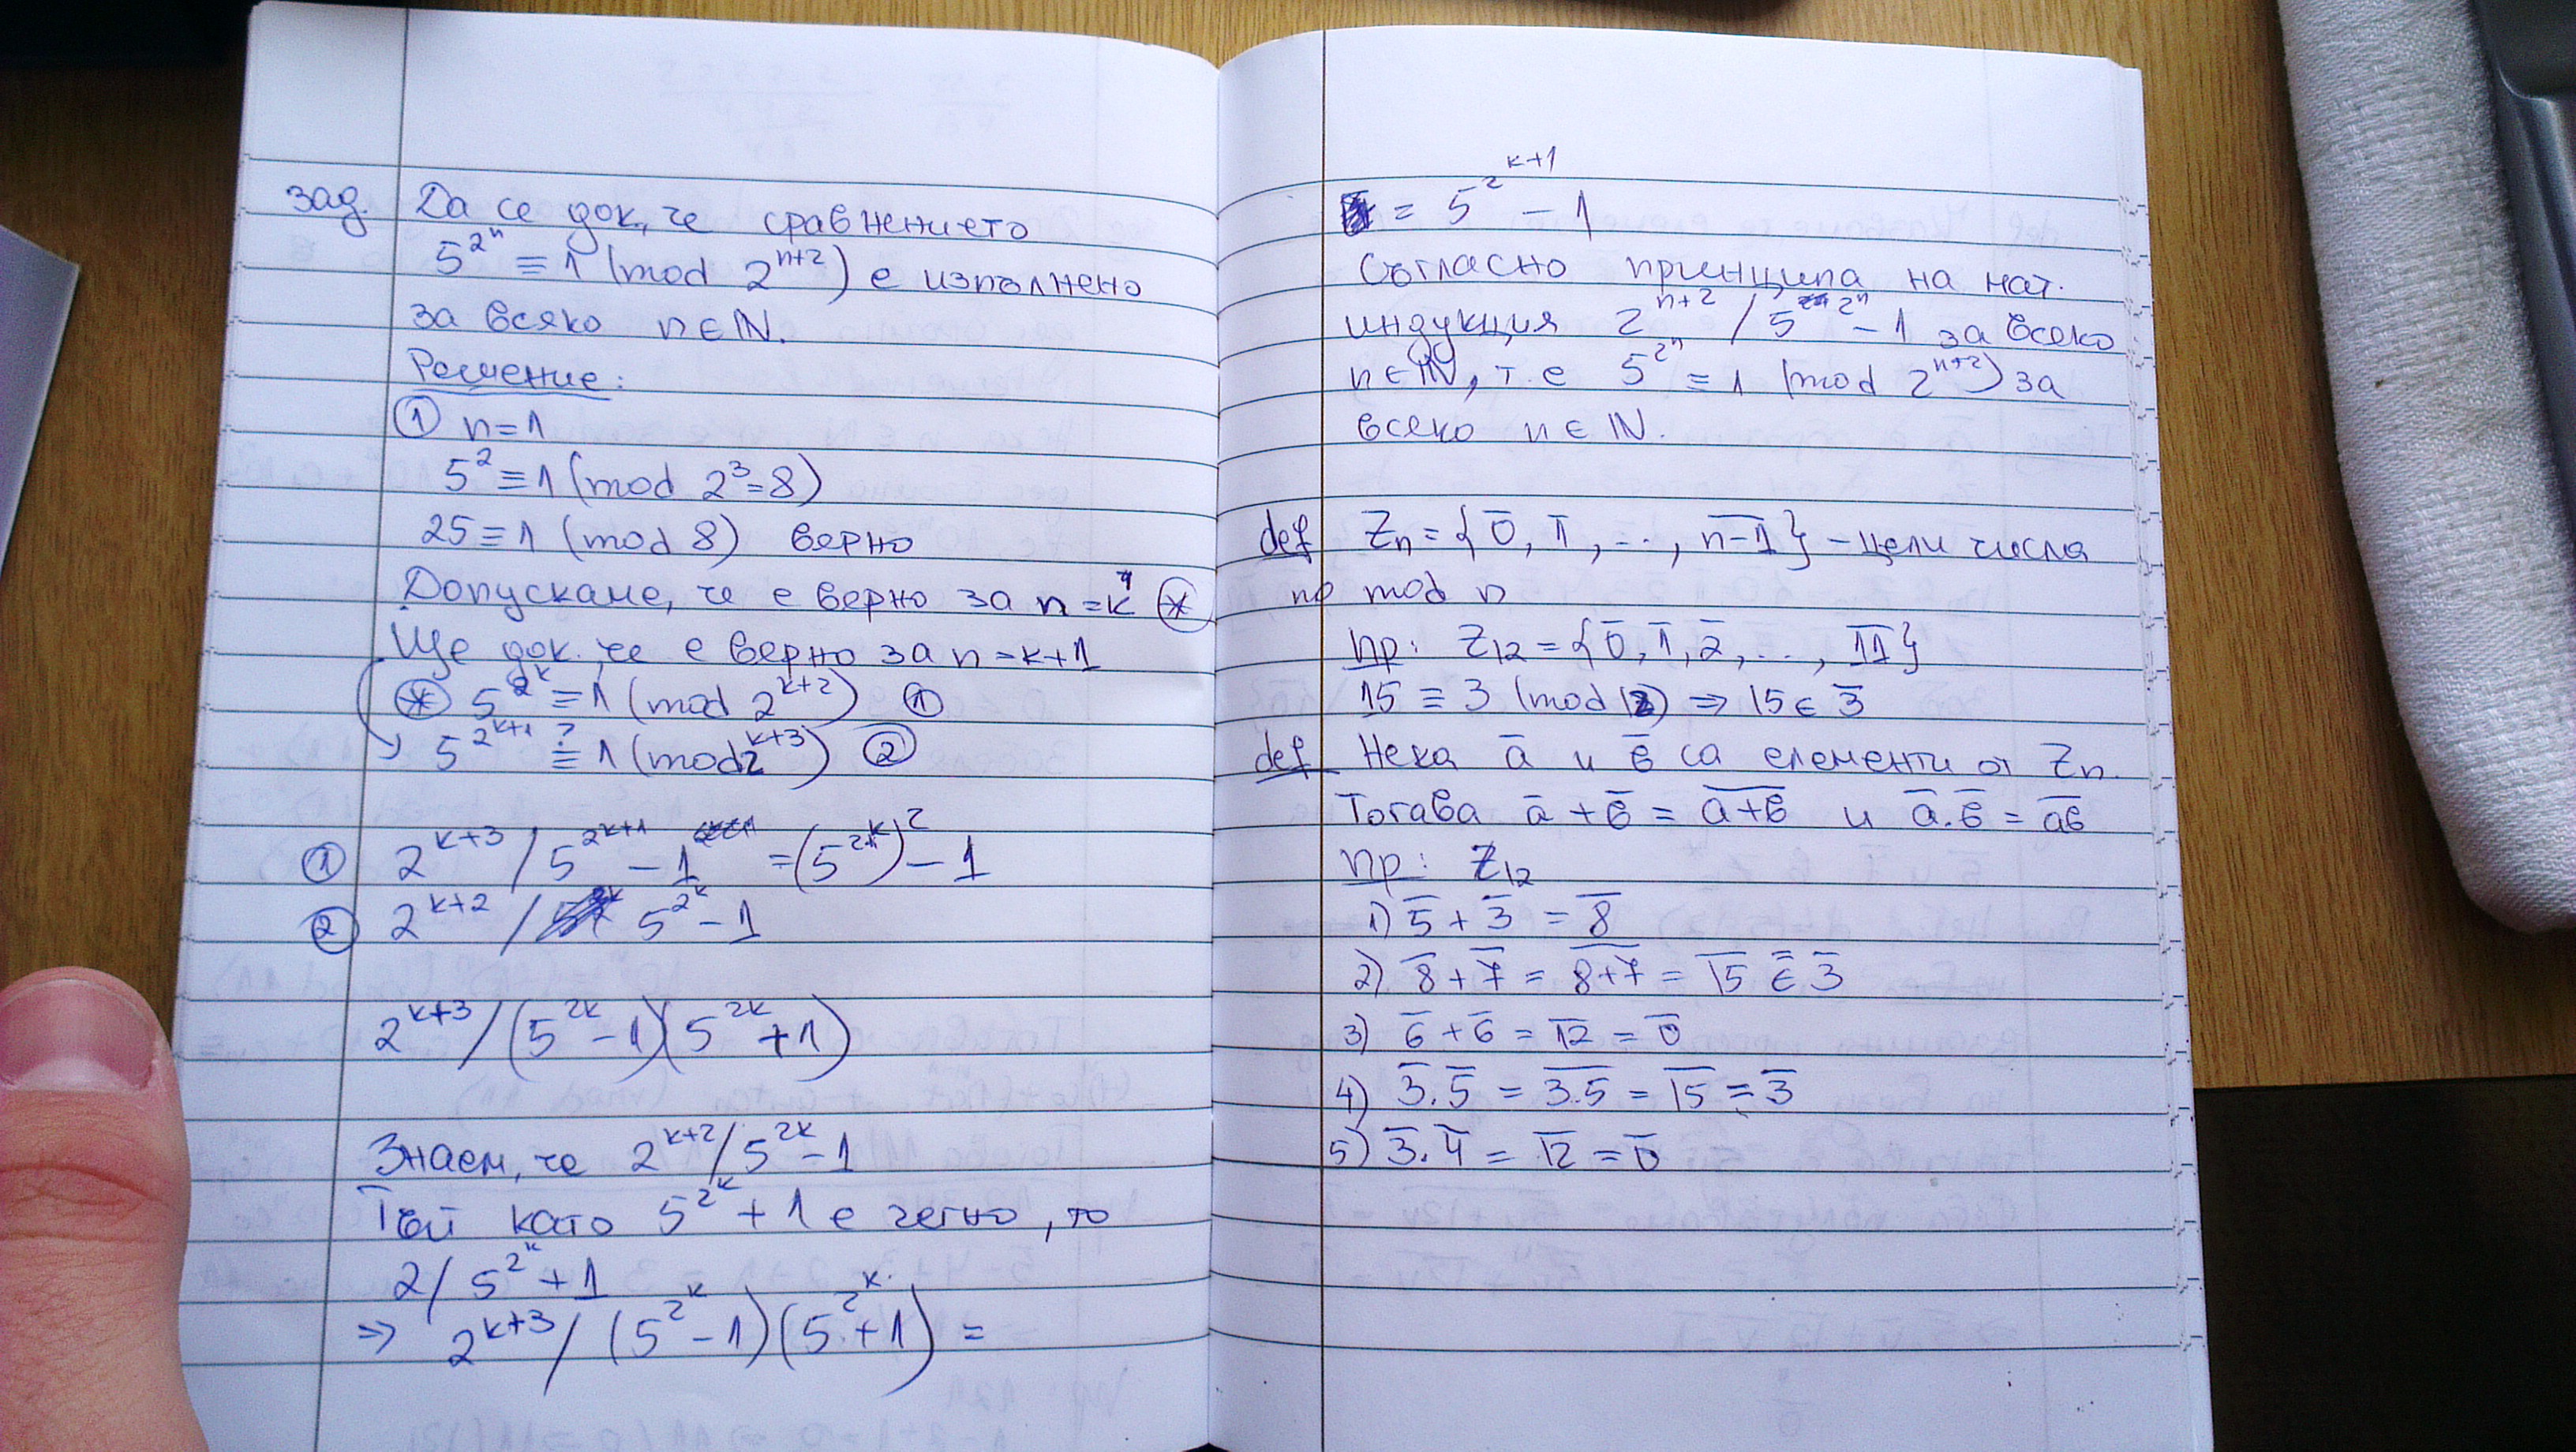 зад. Да се док, че сравнението
5^{2^n} ≡ 1 (mod 2^{n+2}) е изпълнено
за всяко n ∈ ℕ.
Решение:
① n=1
5^2 ≡ 1 (mod 2^3=8)
25 ≡ 1 (mod 8) верно
Допускаме, че е верно за n=k ⊛
Ще док. че е верно за n=k+1
⊛ 5^{2^k} ≡ 1 (mod 2^{k+2}) ①
5^{2^{k+1}} ?≡ 1 (mod 2^{k+3}) ②
① 2^{k+3} / 5^{2^{k+1}} - 1 = (5^{2^k})^2 - 1
② 2^{k+2} / 5^{2^k} - 1
2^{k+3} / (5^{2k} - 1)(5^{2k} + 1)
Знаем, че 2^{k+2} / 5^{2k} - 1
Тъй като 5^{2^k} + 1 е четно, то
2 / 5^{2^k} + 1
⇒ 2^{k+3} / (5^{2^k} - 1)(5^{2^k} + 1) =
= 5^{2^{k+1}} - 1
Съгласно принципа на мат.
индукция 2^{n+2} / 5^{2^n} - 1 за всеко
n ∈ ℕ, т.е 5^{2^n} ≡ 1 (mod 2^{n+2}) за
всеко n ∈ ℕ.
def Z_n = {0̅, 1̅, ..., \overline{n-1}} - цели числа
по mod n
пр: Z_{12} = {0̅, 1̅, 2̅, ..., \overline{11}}
15 ≡ 3 (mod 12) ⇒ 15 ∈ 3̅
def Нека a̅ и в̅ са елементи от Z_n.
Тогава a̅ + в̅ = \overline{a+в} и a̅.в̅ = \overline{aв}
пр: Z_{12}
1) 5̅ + 3̅ = 8̅
2) 8̅ + 7̅ = \overline{8+7} = \overline{15} ∈ 3̅
3) 6̅ + 6̅ = \overline{12} = 0̅
4) 3̅.5̅ = \overline{3.5} = \overline{15} = 3̅
5) 3̅.4̅ = \overline{12} = 0̅